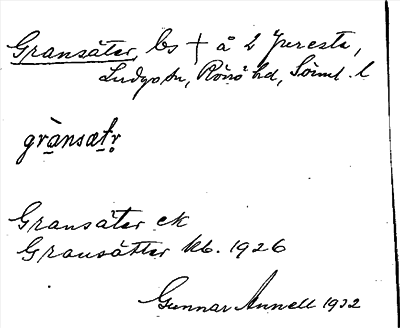 Gransäter, bs † å 2 Juresta,
Ludgo sn, Rönö hd, Sörml. l
grànsætr̥
Gransäter ek
Gransätter kb. 1926
Gunnar Annell 1932